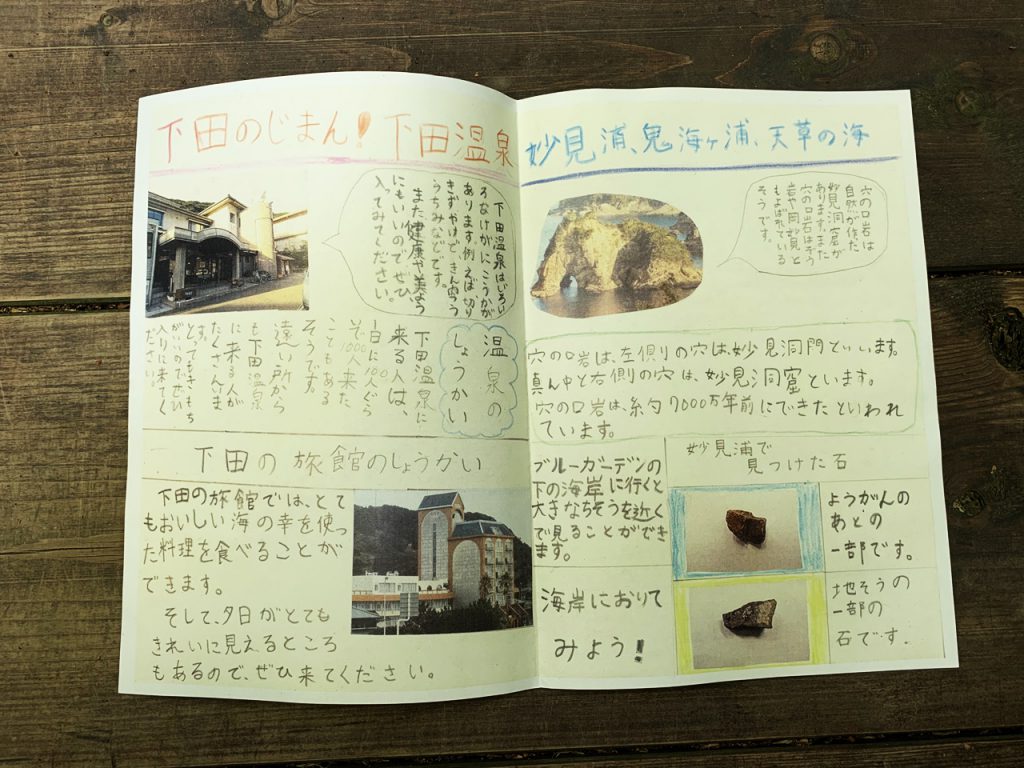 下田のじまん!下田温泉
下田温泉はいろい
ろなけがにこうかが
あります。例えば切り
きずややけど、きん肉つう
うちみなどです。
また健康や美よう
にもいいので、ぜひ
入ってみてください。
温泉の
しょうかい
下田温泉に
来る人は、
1日に10人ぐらい
その
こともある
そうです。
遠い所から
も下田温泉
に来る人が
たくさんいま
す。
とってもきもち
がいいのでぜひ
入りに来てく
ださい。
下田の旅館のしょうかい
下田の旅館では、とて
もおいしい海の幸を使っ
た料理を食べることが
できます。
そして、夕日がとても
きれいに見えるところ
もあるので、ぜひ来てください。
妙見浦、鬼海ヶ浦、天草の海
穴の口岩は
自然が作た
妙見洞窟が
あります。また
穴の口岩はぞう
岩や同妙見と
もよばれている
そうです。
穴の口岩は、左側りの穴は、妙見洞門といいます。
真ん中と右側の穴は、妙見洞窟といます。
穴の口岩は、約7000万年前にできたといわれ
ています。
ブルーガーデンの
下の海岸に行くと
大きなちそうを近く
で見ることができ
ます。
海岸におりて
みよう!
妙見浦で
見つけた石
ようがんの
あとの
一部です。
地そうの
一部の
石です.